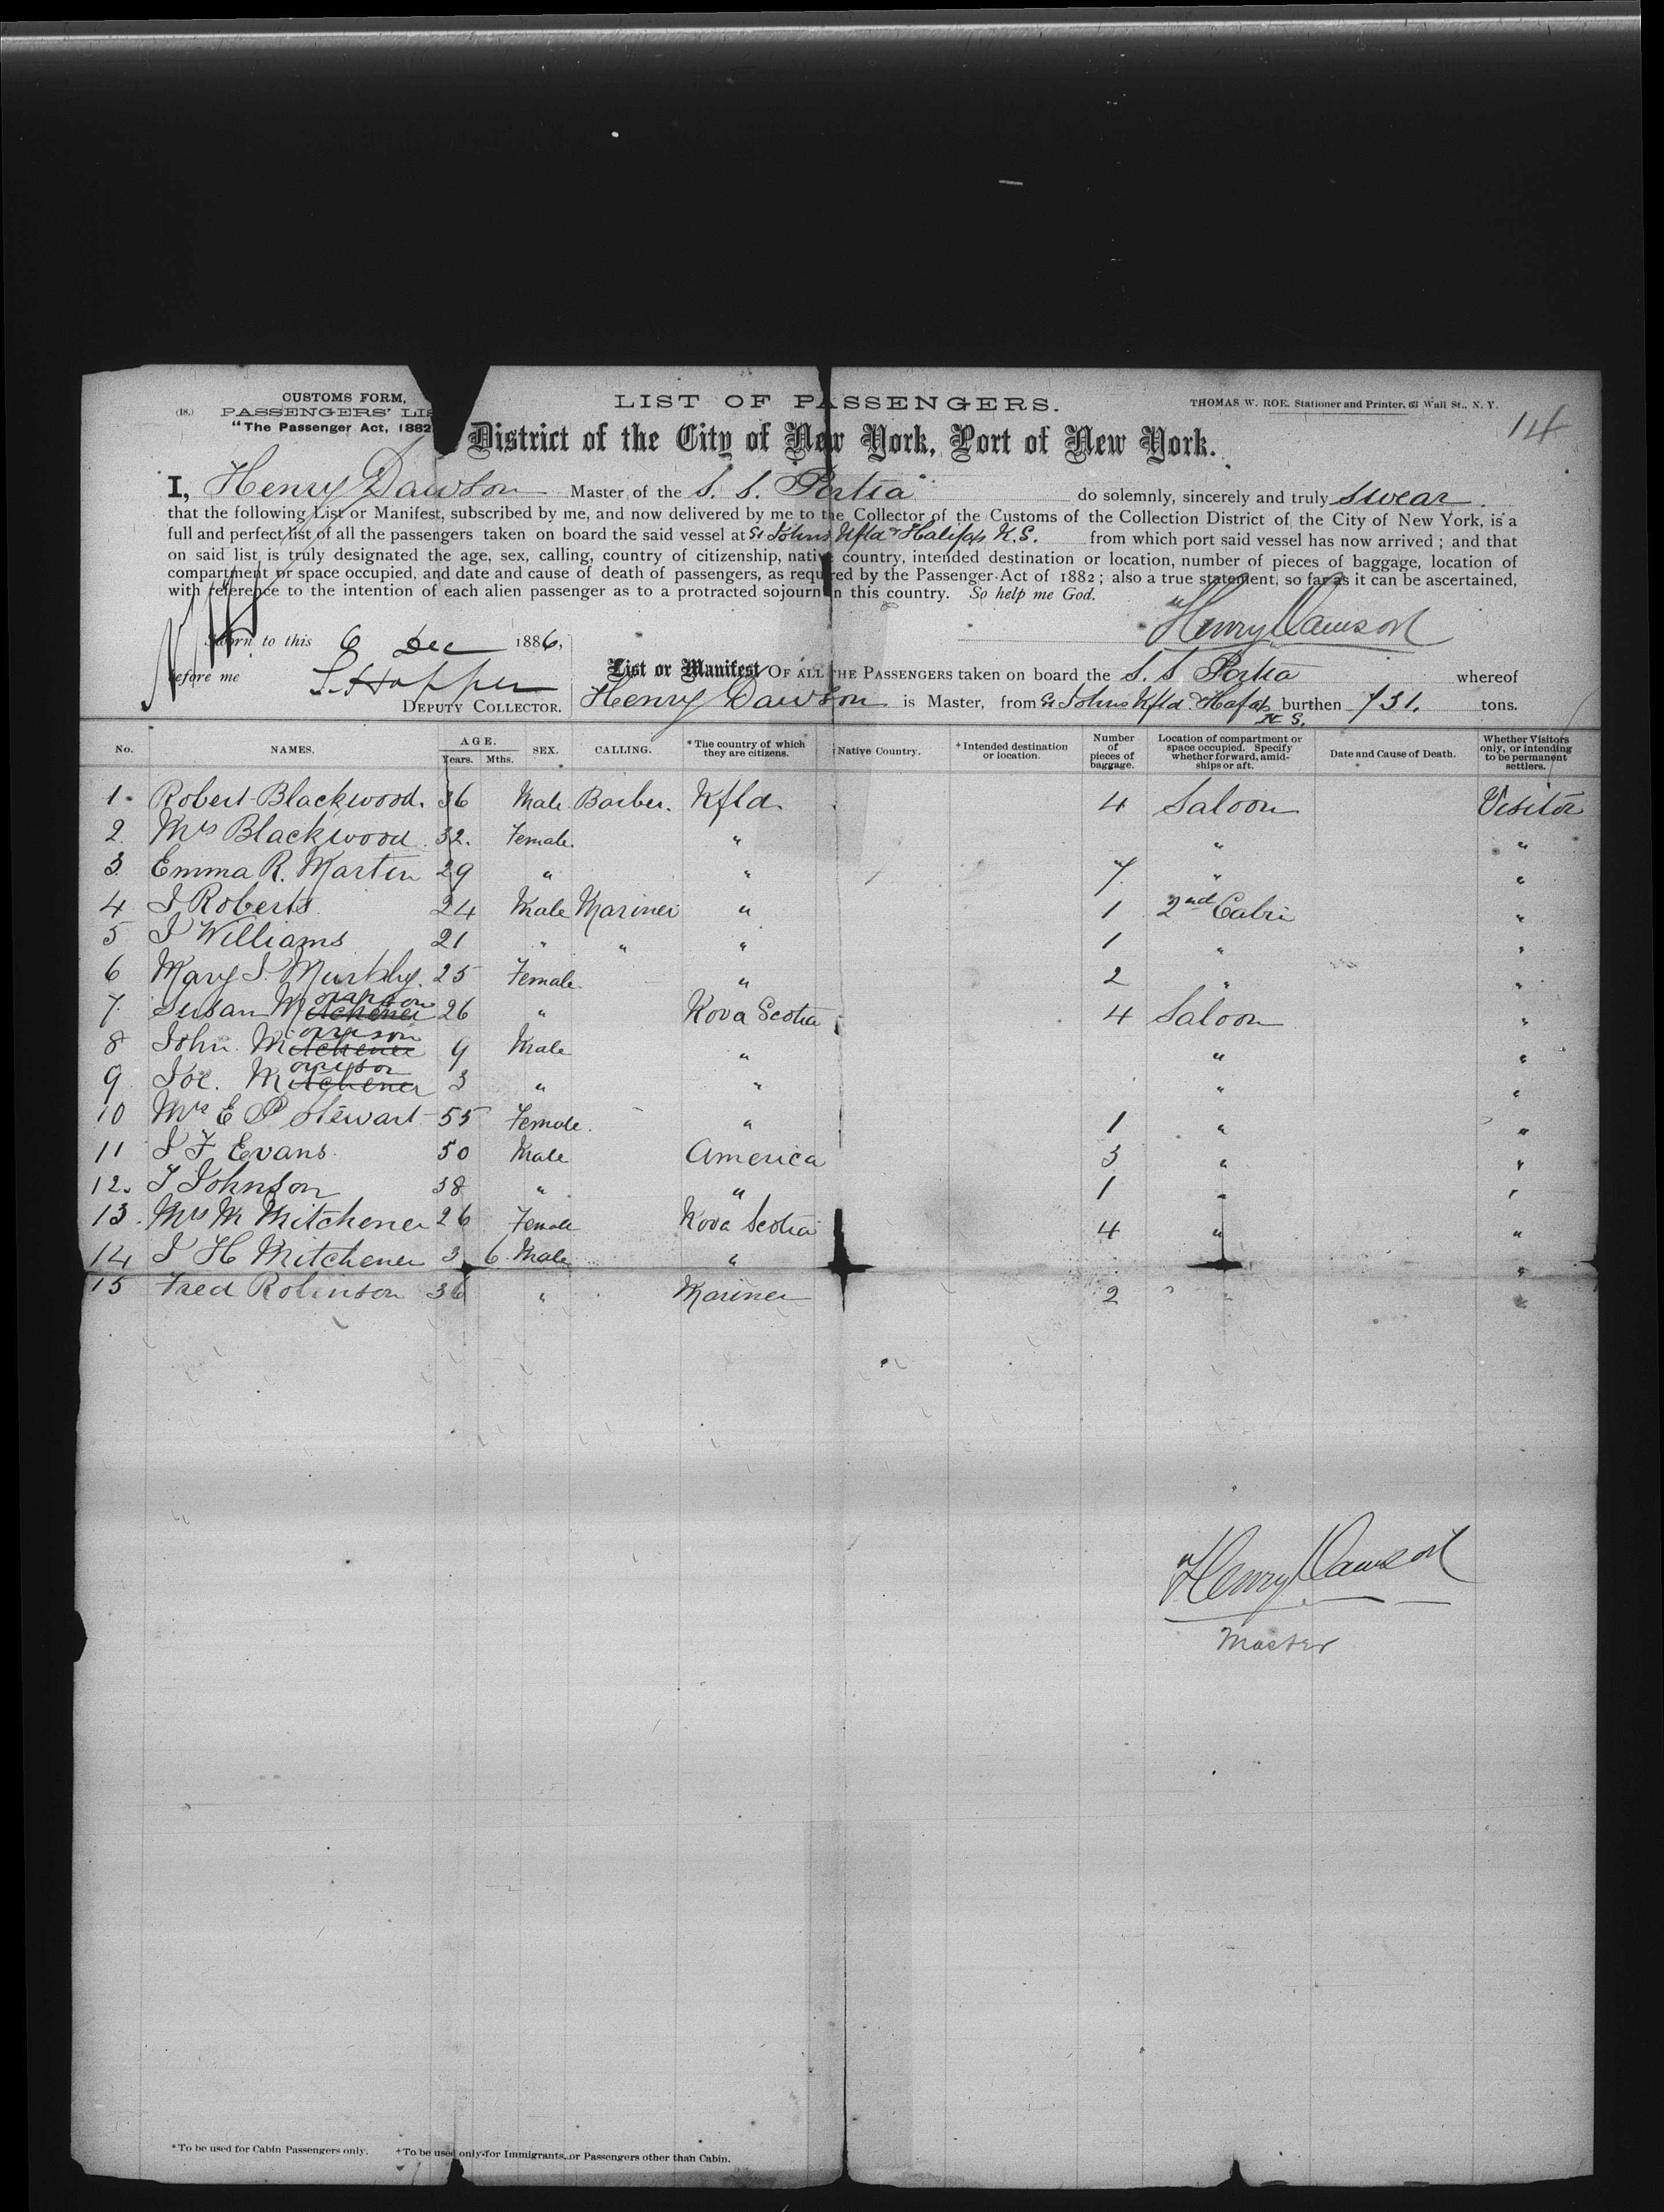 CUSTOMS FORM,
(18.) PASSENGERS' LIS
"The Passenger Act, 1882
LIST OF PASSENGERS.
THOMAS W. ROE, Stationer and Printer, 63 Wall St., N. Y.
14
District of the City of New York, Port of New York.
I, Henry Dawson Master of the S. S. Portia do solemnly, sincerely and truly swear
that the following List or Manifest, subscribed by me, and now delivered by me to the Collector of the Customs of the Collection District of the City of New York, is a
full and perfect list of all the passengers taken on board the said vessel at St Johns Nfld & Halifax N.S. from which port said vessel has now arrived; and that
on said list is truly designated the age, sex, calling, country of citizenship, native country, intended destination or location, number of pieces of baggage, location of
compartment or space occupied, and date and cause of death of passengers, as required by the Passenger Act of 1882; also a true statement, so far as it can be ascertained,
with reference to the intention of each alien passenger as to a protracted sojourn in this country. So help me God.
Henry Dawson
Sworn to this 6 Dec 1886,
before me
DEPUTY COLLECTOR.
List or Manifest OF ALL THE PASSENGERS taken on board the S. S Portia whereof
Henry Dawson is Master, from St Johns Nfld & Hafax N S. burthen 731. tons.
No. NAMES. AGE. Years. Mths. SEX. CALLING. *The country of which they are citizens. †Native Country. †Intended destination or location. Number of pieces of baggage. Location of compartment or space occupied. Specify whether forward, amidships or aft. Date and Cause of Death. Whether Visitors only, or intending to be permanent settlers.
1. Robert Blackwood. 36 Male Barber. Nfld. 4 Saloon Visitor
2. Mrs Blackwood. 32. Female. " " "
3 Emma R. Martin 29 " " 7. " "
4 J Roberts 24 Male Mariner " 1 2nd Cabin "
5 J Williams 21 " " " 1 " "
6 Mary J. Murphy. 25 Female. " 2 " "
7. Susan Mitchener orrison 26 " Nova Scotia 4 Saloon "
8 John Mitchener orrison 9 Male " " "
9 Joe. Mitchener orrison 3 " " " "
10 Mrs E P Stewart 55 Female. " 1 " "
11 J F Evans 50 Male America 3 " "
12. J Johnson 38 " " 1 " "
13. Mrs M Mitchener 26 Female Nova Scotia 4 " "
14 J H Mitchener 3 6 Male " "
15 Fred Robinson 36 " Mariner 2 " "
Henry Dawson
Master
*To be used for Cabin Passengers only. †To be used only for Immigrants, or Passengers other than Cabin.